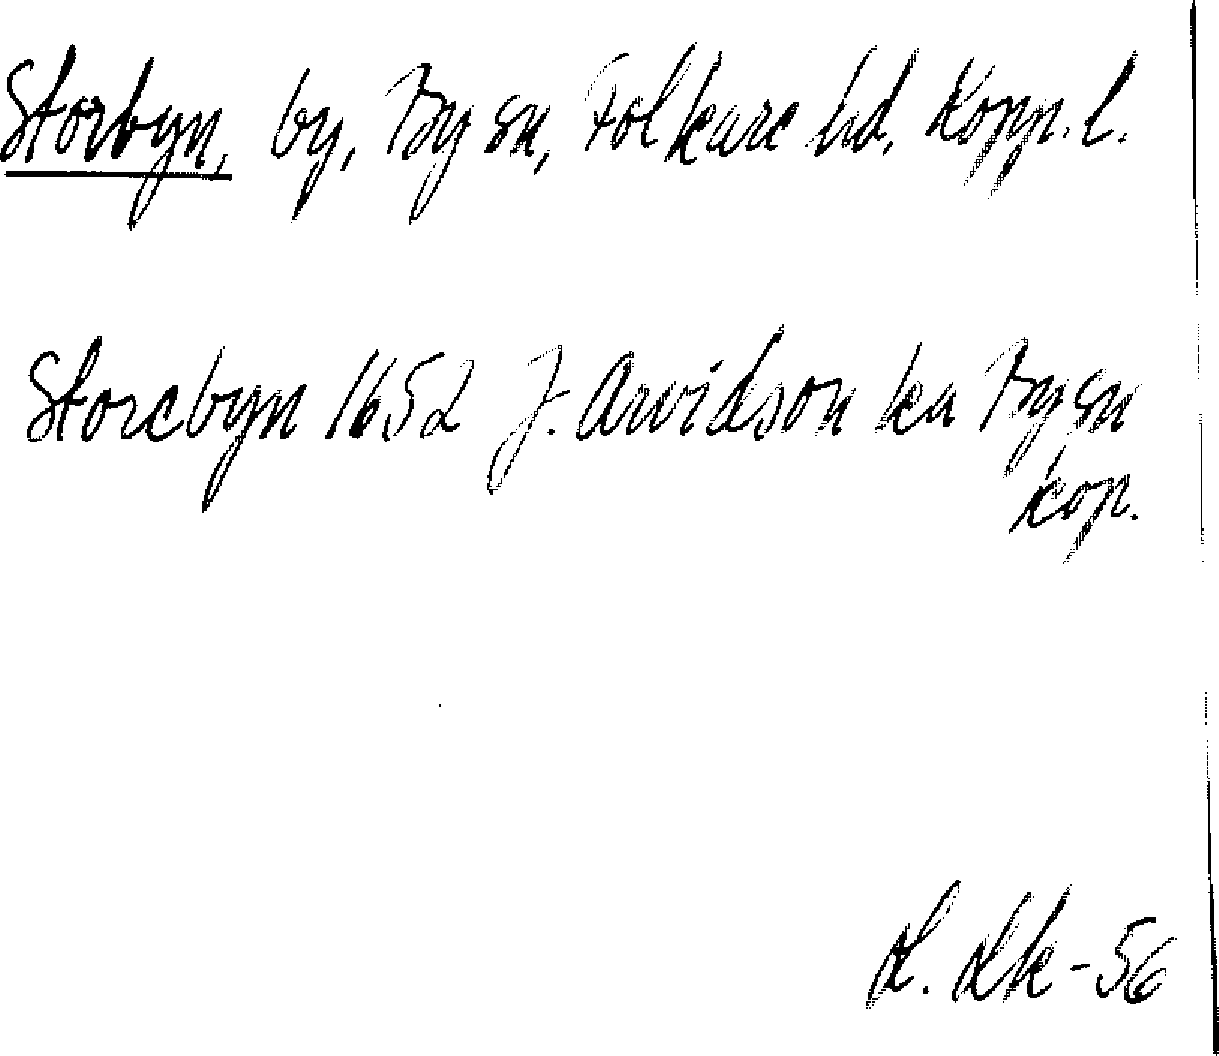 Storbyn, by, By sn, Folkare hd, Kopp. l.
Storebyn 1652 J. Arvidson ka By sn
kop.
L. Lk - 56